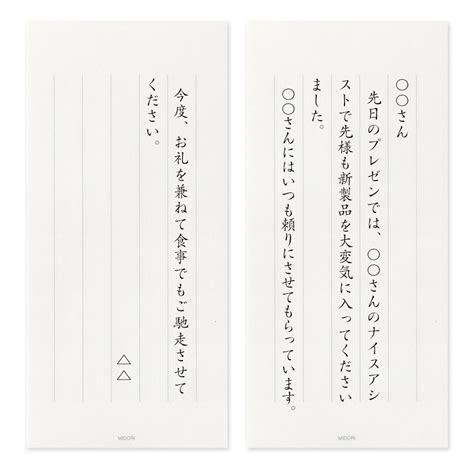 ○○さん
先日のプレゼンでは、○○さんのナイスアシ
ストで先様も新製品を大変気に入ってください
ました。
○○さんにはいつも頼りにさせてもらっています。
MIDORI
今度、お礼を兼ねて食事でもご馳走させて
ください。
△△
MIDORI